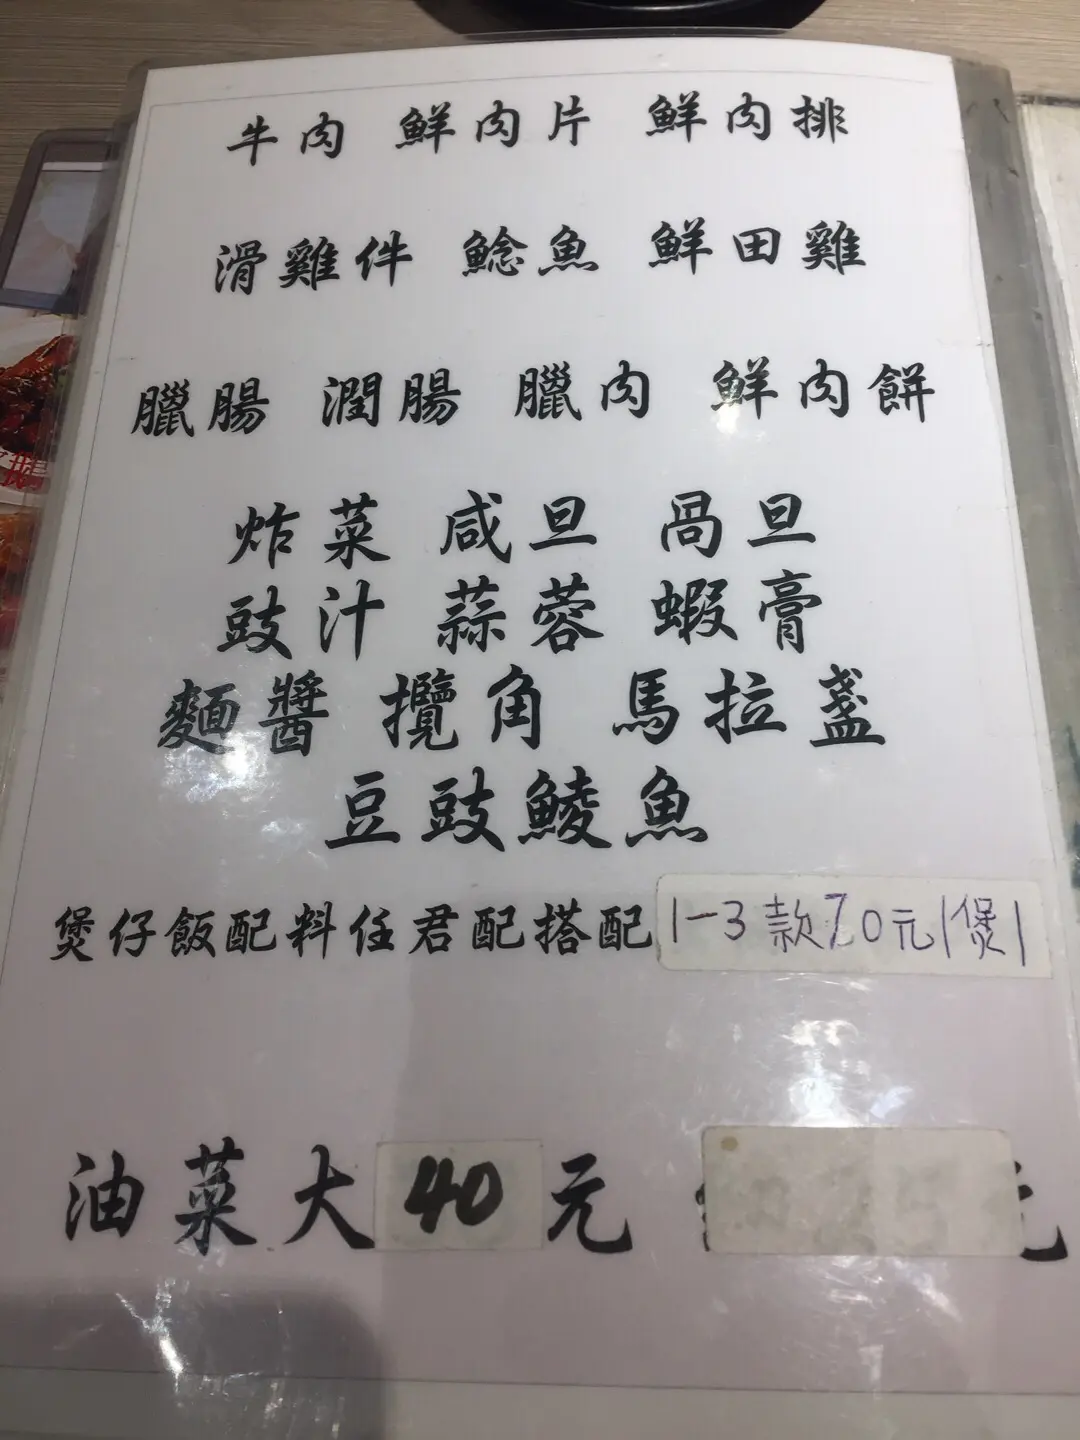 牛肉 鮮肉片 鮮肉排
滑雞件 鯰魚 鮮田雞
臘腸 潤腸 臘肉 鮮肉餅
炸菜 咸旦 咼旦
豉汁 蒜蓉 蝦膏
麵醬 攬角 馬拉盞
豆豉鯪魚
煲仔飯配料任君配搭配 1-3款70元1煲
油菜大40元